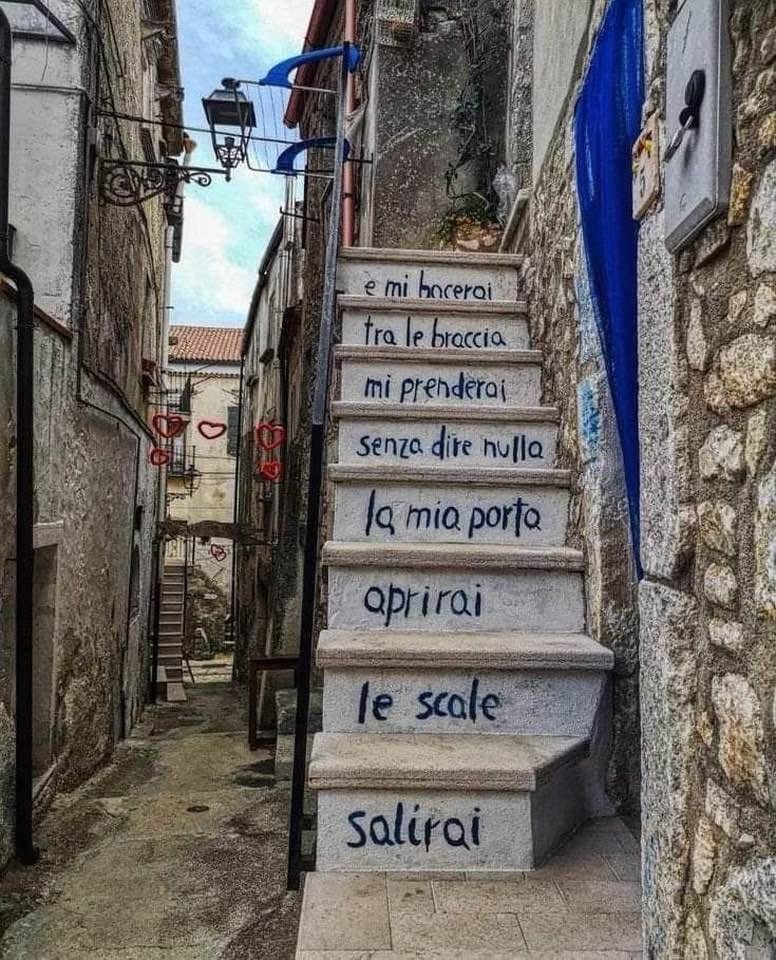 salirai
le scale
aprirai
la mia porta
senza dire nulla
mi prenderai
tra le braccia
e mi bacerai